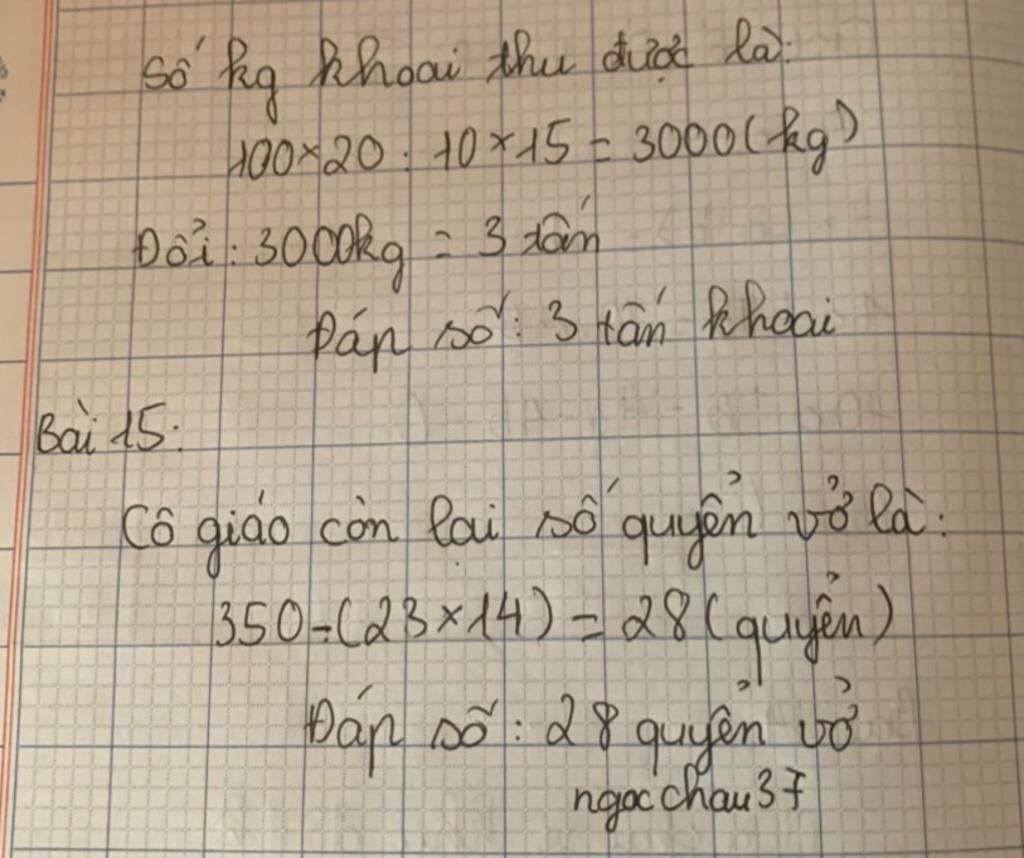 Số kg khoai thu được là:
100×20 : 10×15 = 3000(kg)
Đổi : 3000kg = 3 tấn
Đáp số : 3 tấn khoai
Bài 15:
Cô giáo còn lại số quyển vở là:
350-(23×14) = 28(quyển)
Đáp số : 28 quyển vở
ngocchau37